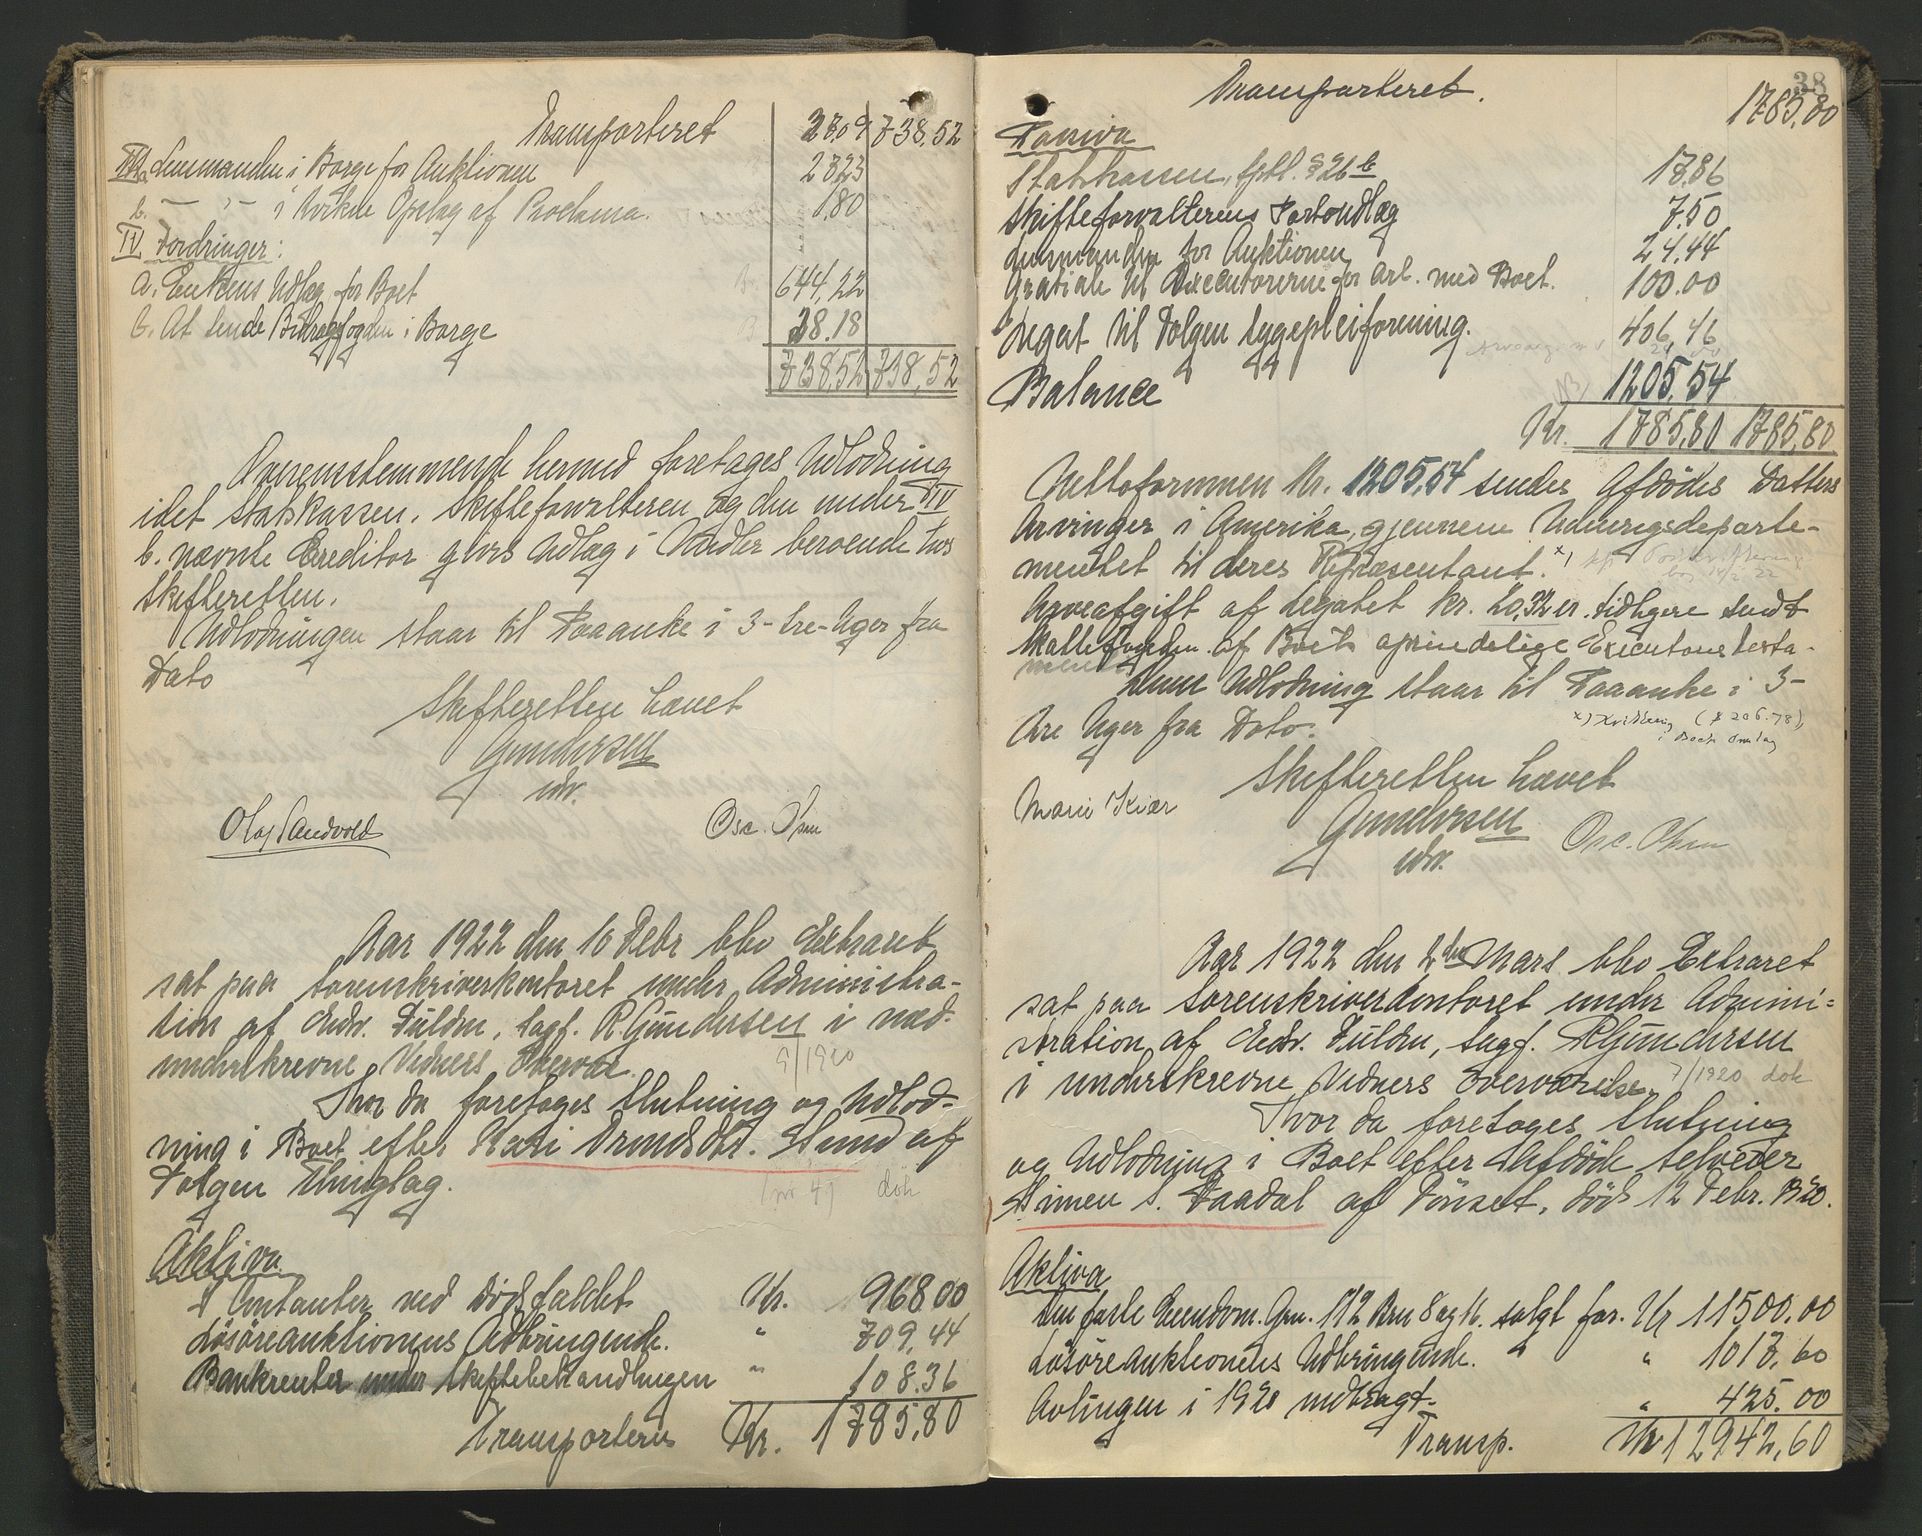 Transporteret 738,52
III a. Lensmanden i Borge for Auktionen 27,23
b. — " — i Kvikne Opslag af Proclama. 1,80
IV Fordringer:
a. Enkens Udlæg for Boet 644,22
b. At lende Bidragsfogden i Borge 28.18
738,52 738,52
Overensstemmende hermed foretages Udlodning
idet Statskassen, Skifteforvalteren og den under IV
b. nævnte Creditor gives Udlæg i Midler beroende hos
Skifteretten.
Udlodningen staar til Paaanke i 3-tre-Uger fra
Dato
Skifteretten hævet
Gundersen
edv.
Olaf Sandvold Osc. Olsen
Aar 1922 den 16 Febr blev Extraret
sat paa Sorenskriverkontoret under Administra-
tion af Edv. Fuldm, sagf. R. Gundersen i ned-
underskrevne Vidners Overvær.
9/1920
Hvor da foretoges Slutning og Udlod-
ning i Boet efter Kari Trondsdtr. Stend af
Tolgen Thinglag.
nr 49 dok
Aktiva
I Contanter ved Dødsfaldet Kr. 968 00
Løsøreauktionens Udbringende. " 709,44
Bankrenter under Skiftebehandlingen " 108.36
Transporteres Kr. 1785,80
38
Transporteret. 1785,80
Passiva
Statskassen, Sptl. § 26 b 17,86
Skifteforvalterens Portoudlæg 7.50
Lensmanden for Auktionen 24,44
Gratiale til Executorerne for Arb. med Boet. 100.00
Legat til Tolgen Sygepleiforening. 406,46
Balance 1205,54
Kr. 1785,80 1785,80
Nettoformuen Kr. 1205,54 sendes Afdødes Datters
Arvinger i Amerika, gjennem Udenrigsdeparte-
mentet til deres Repræsentant. x)
Arveafgift af Legatet Kr. 20,32 er tidligere sendt
Skattefogden af Boets oprindelige Executores testa-
menti
Denne Udlodning staar til Paaanke i 3-
tre Uger fra Dato.
x) Kvittering (§ 206.78),
i Boets Omslag
Skifteretten hævet
Marie Kiær Gundersen Osc. Olsen
edv.
Aar 1922 den 2den Mars blev Extraret
sat paa Sorenskriverkontoret under Admini=
stration af Edv. Fuldm, sagf. R Gundersen
i underskrevne Vidners Overværelse.
7/1920 dok
Hvor da foretoges Slutning
og Udlodning i Boet efter Afdøde Selveier
Simen S. Paadal af Tönset, död 12 Febr. 1920.
Aktiva
Den faste Eiendom. Gnr. 112 Brn 8 og 16. solgt for. Kr 11500.00
Løsøreauktionens Udbringende. " 1017,60
Avlingen i 1920 indbragt. " 425.00
Transp. Kr 12942,60